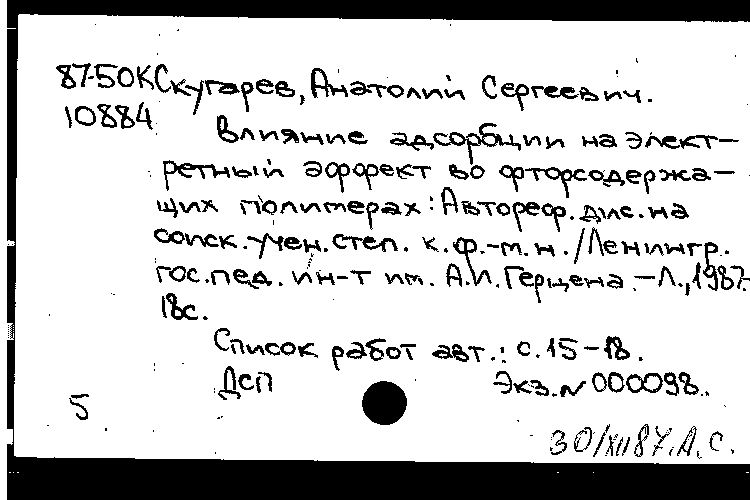 87-50К Скугарев, Анатолий Сергеевич.
10884
Влияние адсорбции на элект-
ретный эффект во фторсодержа-
щих полимерах: Автореф. дис. на
соиск. учен. степ. к.ф.-м.н. / Ленингр.
гос. пед. ин-т им. А.И. Герцена. - Л., 1987.-
18с.
Список работ авт.: с. 15-18.
ДСП Экз. N 000098.
5
30/XII 87. А.С.